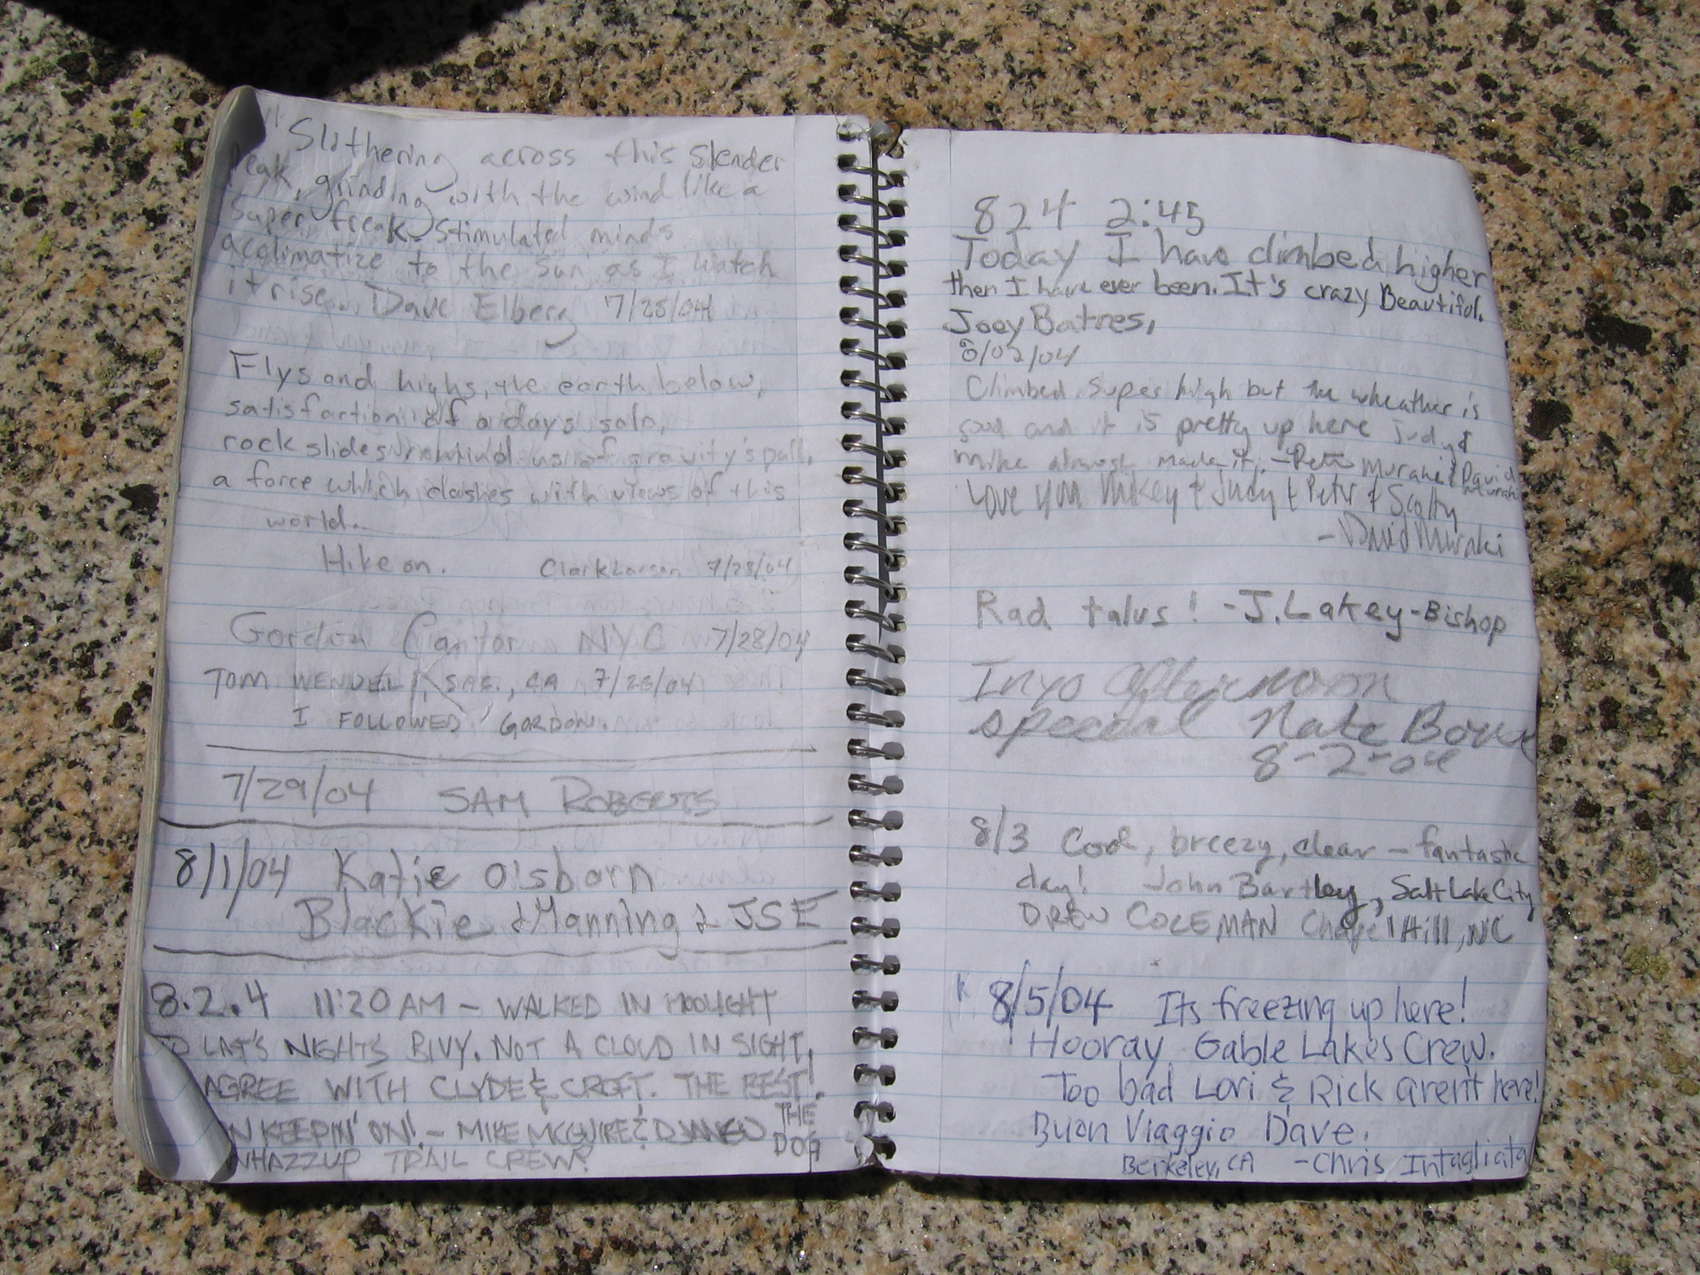 Slithering across this slender
peak, grinding with the wind like a
super freak. Stimulated minds
acclimatize to the sun as I watch
it rise. Dave Elberg 7/28/04
Flys and highs, the earth below,
satisfaction of a days solo,
rock slides remind us of gravity's pull,
a force which clashes with views of this
world.
Hike on. Clark Larson 7/28/04
Gordon Cantor NYC 7/28/04
TOM WENDELL, SAC., CA 7/28/04
I FOLLOWED GORDON.
7/29/04 SAM ROBERTS
8/1/04 Katie O'sborn
Blackie & Manning & JSE
8.2.4 11:20 AM - WALKED IN MOOLIGHT
TO LAT'S NIGHTS BIVY. NOT A CLOUD IN SIGHT,
AGREE WITH CLYDE & CROFT. THE BEST!
N KEEPIN' ON! - MIKE MCGUIRE & DJANGO THE
DOG
WHAZZUP TRAIL CREW?
8 2 4 2:45
Today I have climbed higher
then I have ever been. It's crazy Beautiful.
Joey Batres,
8/02/04
Climbed super high but the wheather is
good and it is pretty up here Judy &
Mike almost made it. - Pete Muraki & David
Muraki
Love you Mikey & Judy & Petr & Scotty
- David Muraki
Rad talus! - J. Lakey - Bishop
Inyo afternoon
special Nate
8-2-04
8/3 Cool, breezy, clear - fantastic
day! John Bartley, Salt Lake City
DREW COLEMAN Chapel Hill, NC
8/5/04 Its freezing up here!
Hooray Gable Lakes Crew.
Too bad Lori & Rick aren't here!
Buon Viaggio Dave.
Berkeley, CA - Chris Intagliata